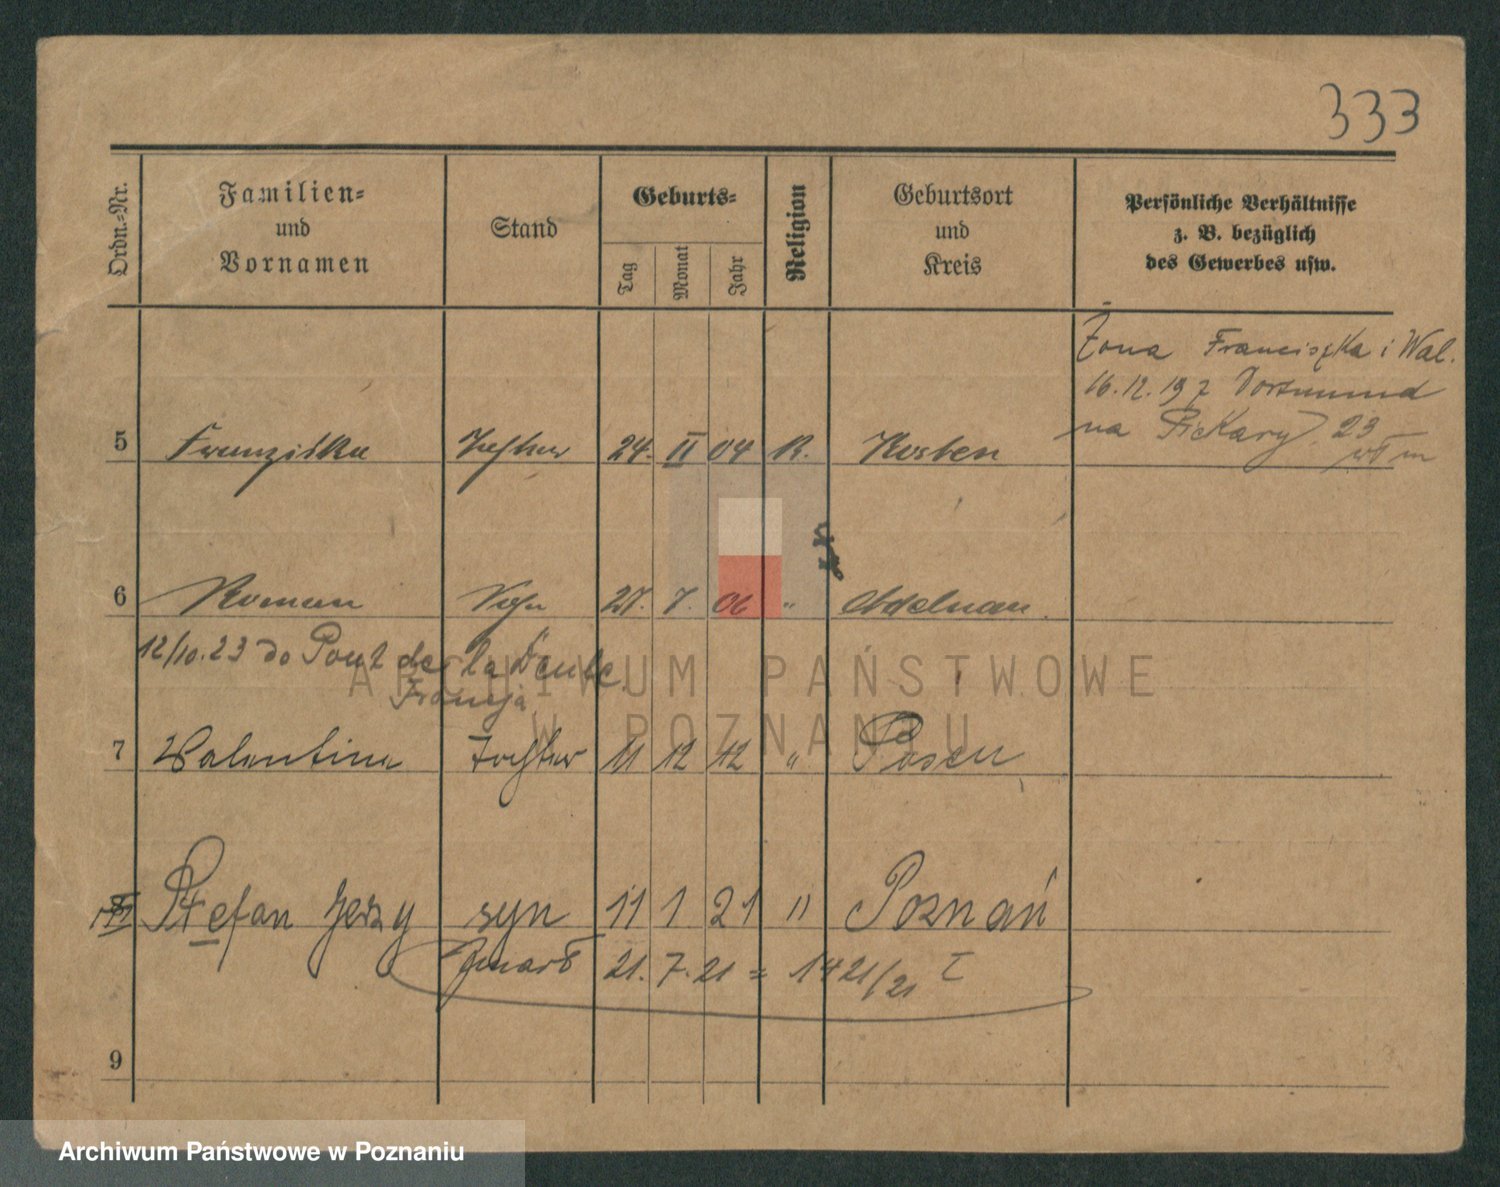 333
Ordn.-Nr.
Familien-
und
Vornamen
Stand
Geburts-
Tag
Monat
Jahr
Religion
Geburtsort
und
Kreis
Persönliche Verhältnisse
z. B. bezüglich
des Gewerbes usw.
Żona Franciszka i Wal.
16.12.19 z Dortmund
na Piekary 23
5 Franziska Tochter 24. II 04 R. Kosten
6 Roman Sohn 7. 06 " Adelnau.
12/10.23 do Pont de la Deule.
Francja
7 Valentina Tochter 11 12 12 " Posen
Stefan Jerzy syn 11 1 21 " Poznań
Zmarł 21. 7. 21 = 1421/21 I
9
ARCHIWUM PAŃSTWOWE
W POZNANIU
Archiwum Państwowe w Poznaniu